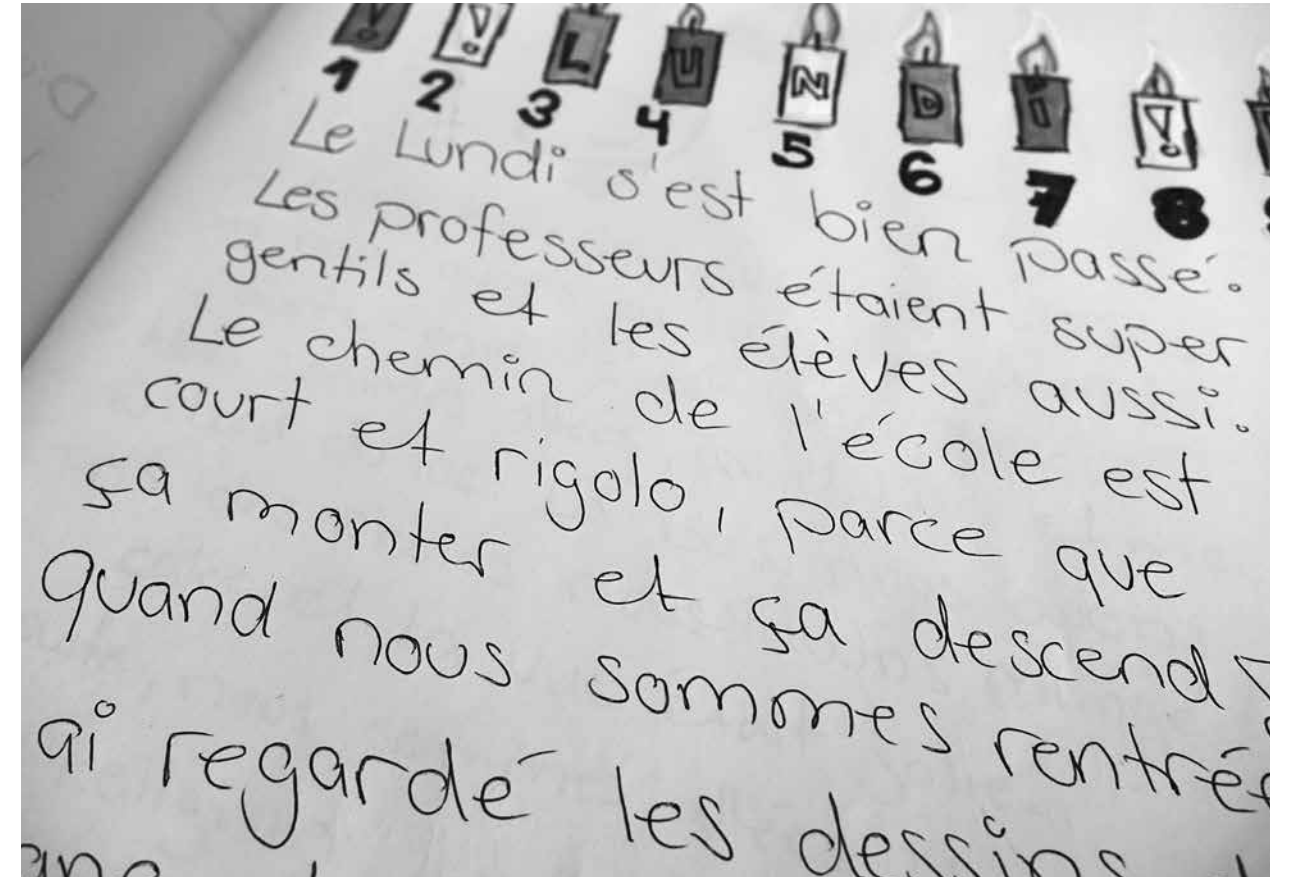 ! ! L U N D I !
1 2 3 4 5 6 7 8
Le Lundi s'est bien passé.
Les professeurs étaient super
gentils et les élèves aussi.
Le chemin de l'école est
court et rigolo, parce que
ça monter et ça descend
quand nous sommes
ai regardé les dessins